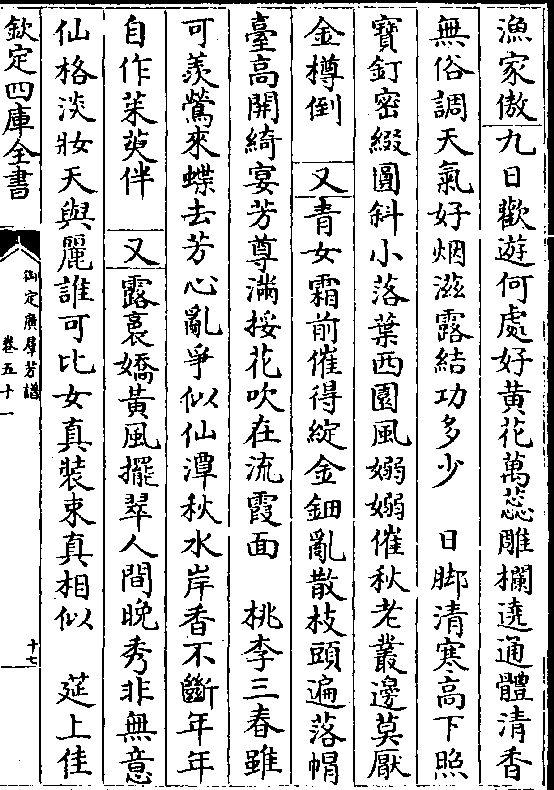 漁家傲九日歡遊何處好黄花萬蕊雕欄遶通體清香
無俗調天氣好烟滋露結功多少　日脚清寒高下照
寶釘密綴圓斜小落葉西園風嫋嫋催秋老叢邊莫厭
金樽倒　又青女霜前催得綻金鈿亂散枝頭遍落帽
臺高開綺宴芳尊滿挼花吹在流霞面　桃李三春雖
可羨鶯來蝶去芳心亂爭似仙潭秋水岸香不斷年年
自作茱萸伴　又露裛嬌黃風擺翠人間晚秀非無意
仙格淡妝天與麗誰可比女真裝束真相似　莚上佳
欽定四庫全書
御定廣羣芳譜
卷五十一
十七